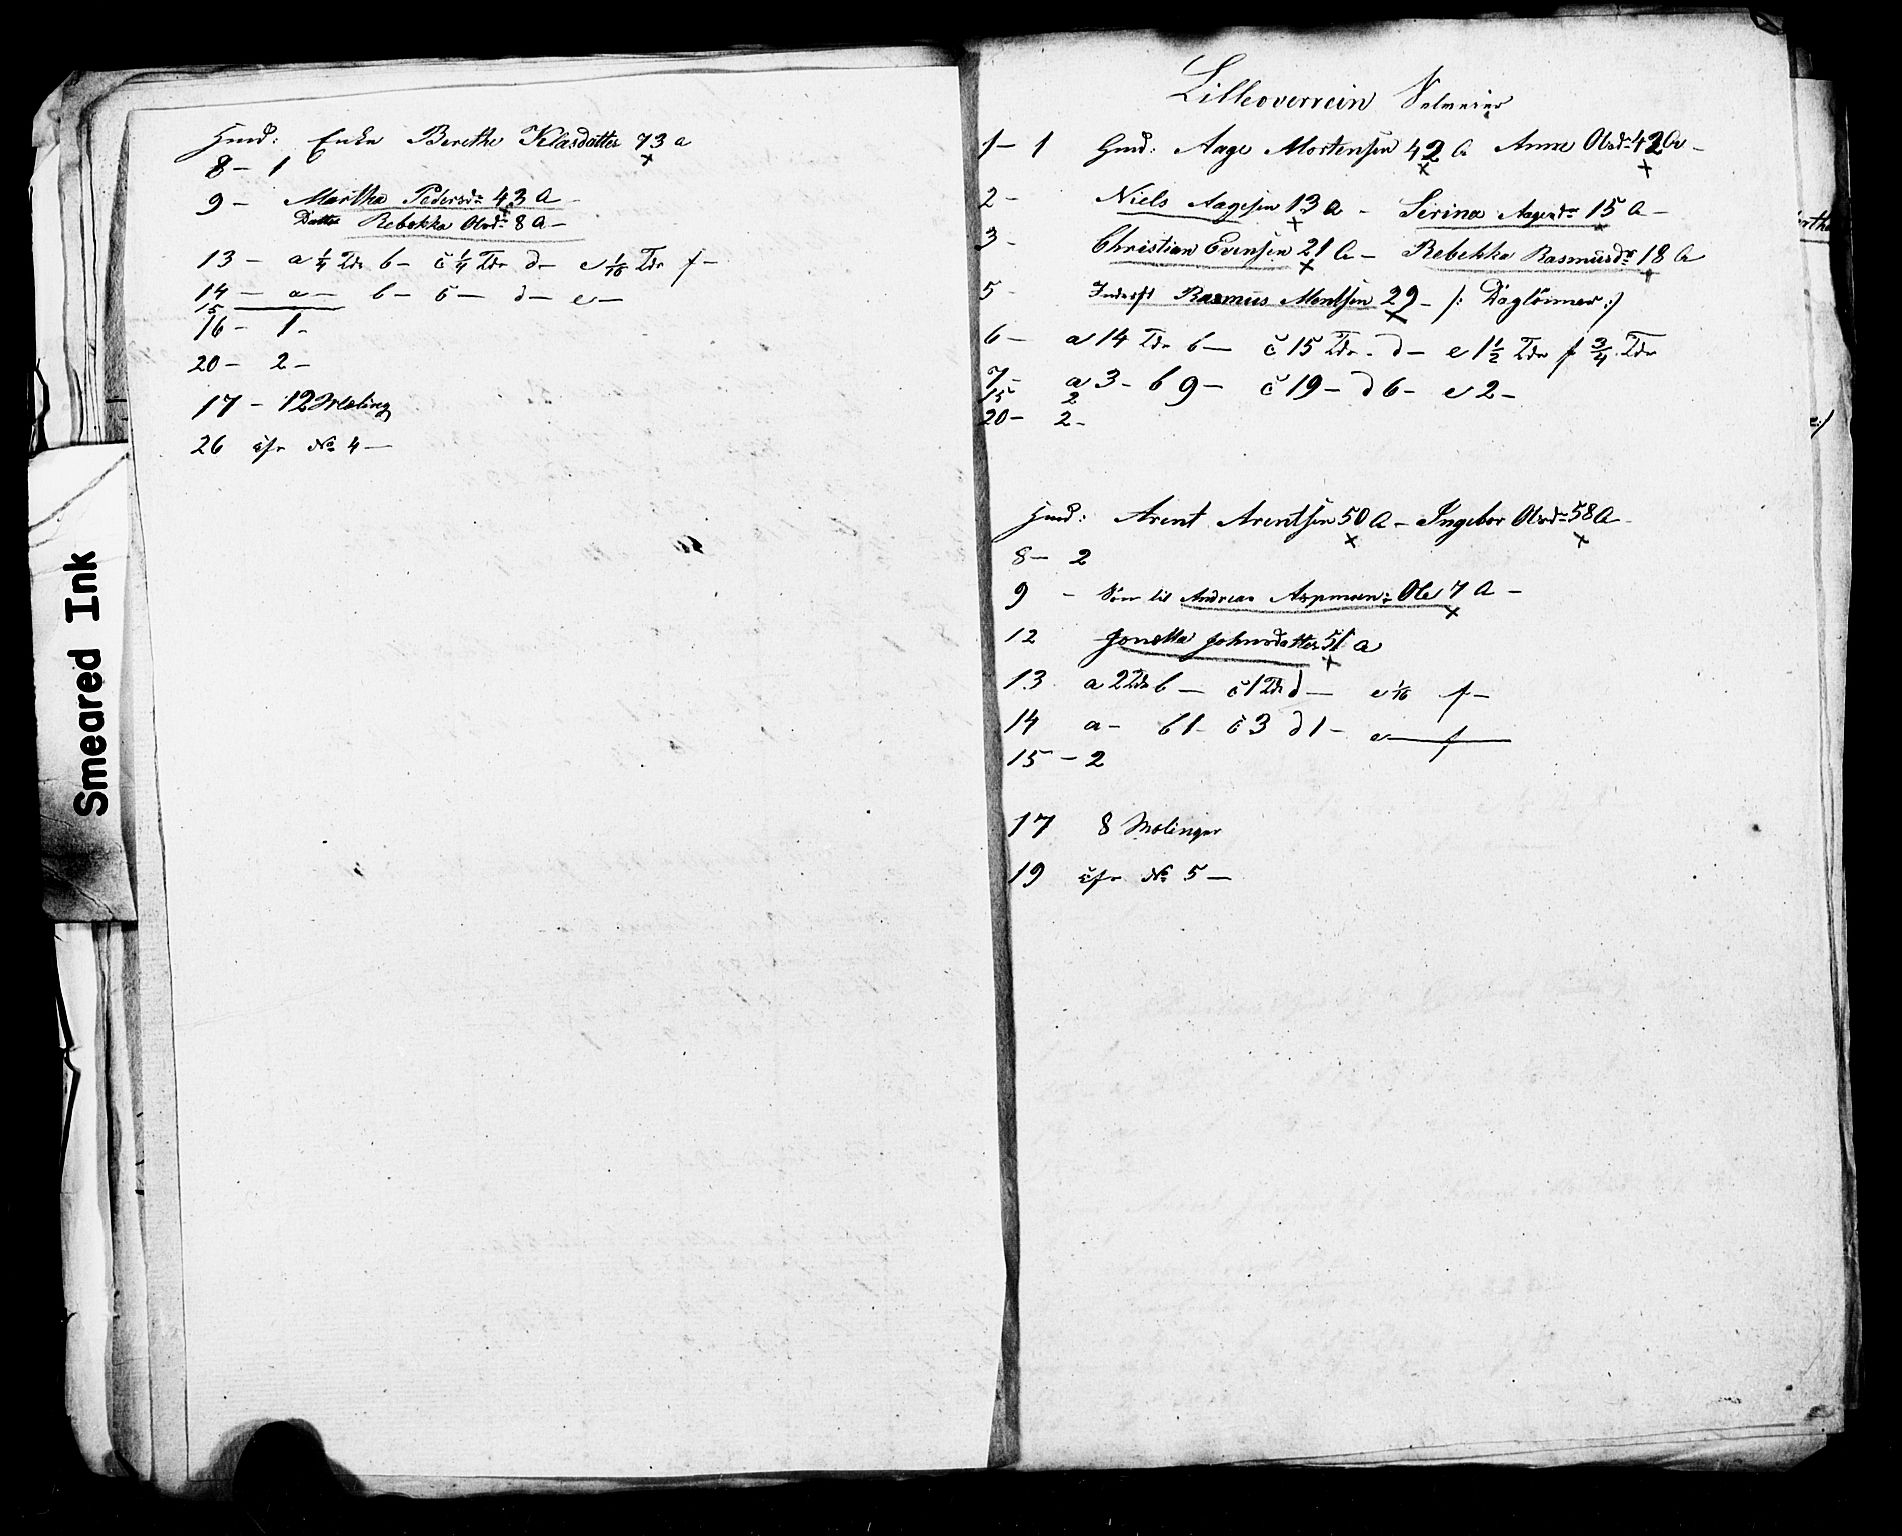 Hmd: Enke Berethe Klasdatter 73 a
8 - 1
9 - Martha Pedersdr 43 A -
Datter Rebekka Olsdr 8 A -
13 - a 1/4 Tdr b - c 1/4 Tdr d - e 1/16 Tdr f -
14 - a - b - c - d - e -
15
16 - 1 -
20 - 2 -
17 - 12 Mæling
26 cfr No 4 -
Smeared Ink
Lilleoverrein
1 - 1 Gmd: Aage Mortensen 42 A Anne Olsdr 42 A -
2 - Niels Aagesen 13 A - Serina Aagesdr 15 A -
3 - Christian Evensen 21 A - Rebekka Rasmusdr 18 A
5 - Inderst Rasmus Mentsen 29 - /: Daglönner :/
6 - a 14 Tdr b - c 15 Tdr - d - e 1 1/2 Tdr f 3/4 Tdr
7 - a 3 - b 9 - c 19 - d 6 - e 2 -
15 2
20 - 2 -
Hmd: Arent Arentsen 50 A - Ingebor Olsdr 58 A -
8 - 2
9 - Sön til Andreas Aspmoen: Ole 7 A -
12 Jonetta Johnsdatter 51 a
13 a 2 Tdr b - c 1 Tdr d - e 1/16 f -
14 a - b 1 - c 3 d 1 - e - f
15 - 2
17 8 Mælinger
19 cfr No 5 -